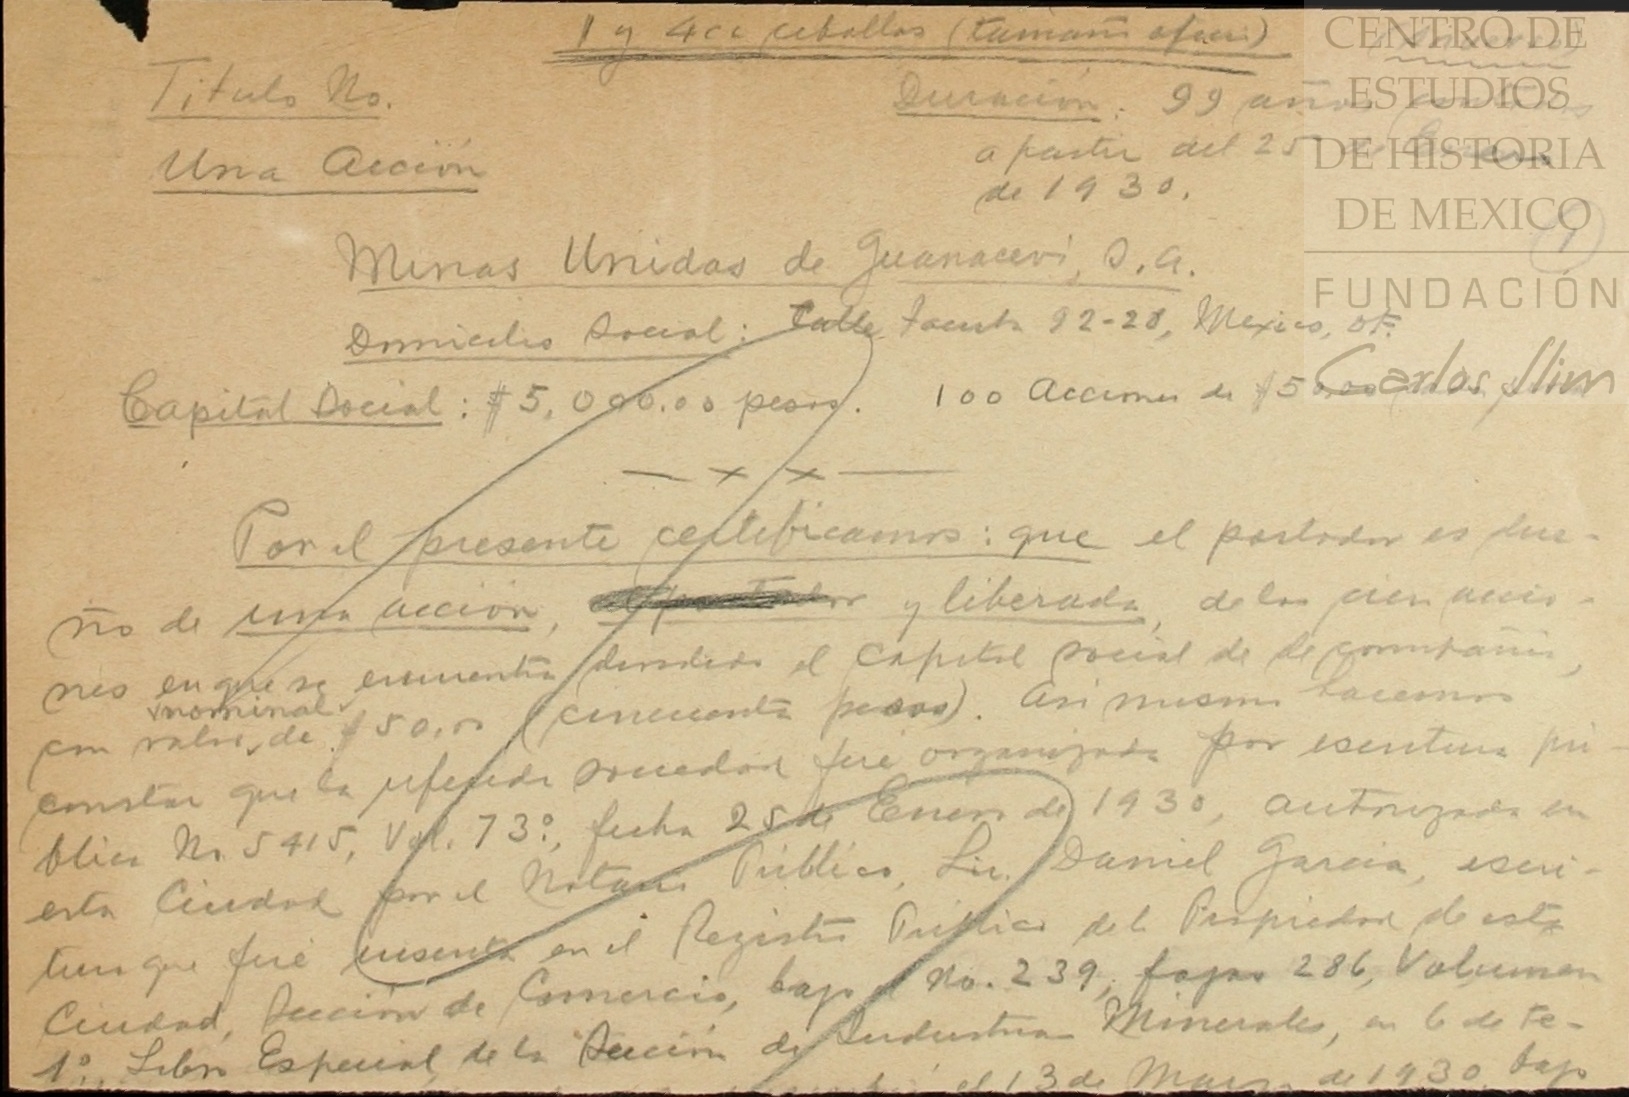 1 y 4 cc cebollas (tamaño oficio)
Título No.
Duración: 99 años
Una Acción
a partir del 25 de Enero
de 1930.
Minas Unidas de Guanaceví, S.A.
Domicilio Social: Calle Tacuba 92-28, México, DF.
Capital Social: $5,000.00 pesos. 100 Acciones de $50.00
— x x —
Por el presente certificamos: que el portador es due-
ño de una acción, y liberada, de las cien accio-
nes en que se encuentra dividido el Capital social de la compañía,
nominal
con valor de $50.00 (cincuenta pesos). Asi mismo hacemos
constar que la referida sociedad fué organizada por escritura pú-
blica No. 5415, Vol. 73º, fecha 25 de Enero de 1930, autorizada en
esta Ciudad por el Notario Público, Lic. Daniel Garcia, escri-
tura que fué inscrita en el Registro Público de la Propiedad de esta
Ciudad, Sección de Comercio, bajo el No. 239, fojas 286, Volumen
1º, Libro Especial de la Sección de Industrias Minerales, en 6 de Fe-
el 13 de Marzo de 1930, bajo
CENTRO DE
ESTUDIOS
DE HISTORIA
DE MEXICO
FUNDACIÓN
Carlos Slim